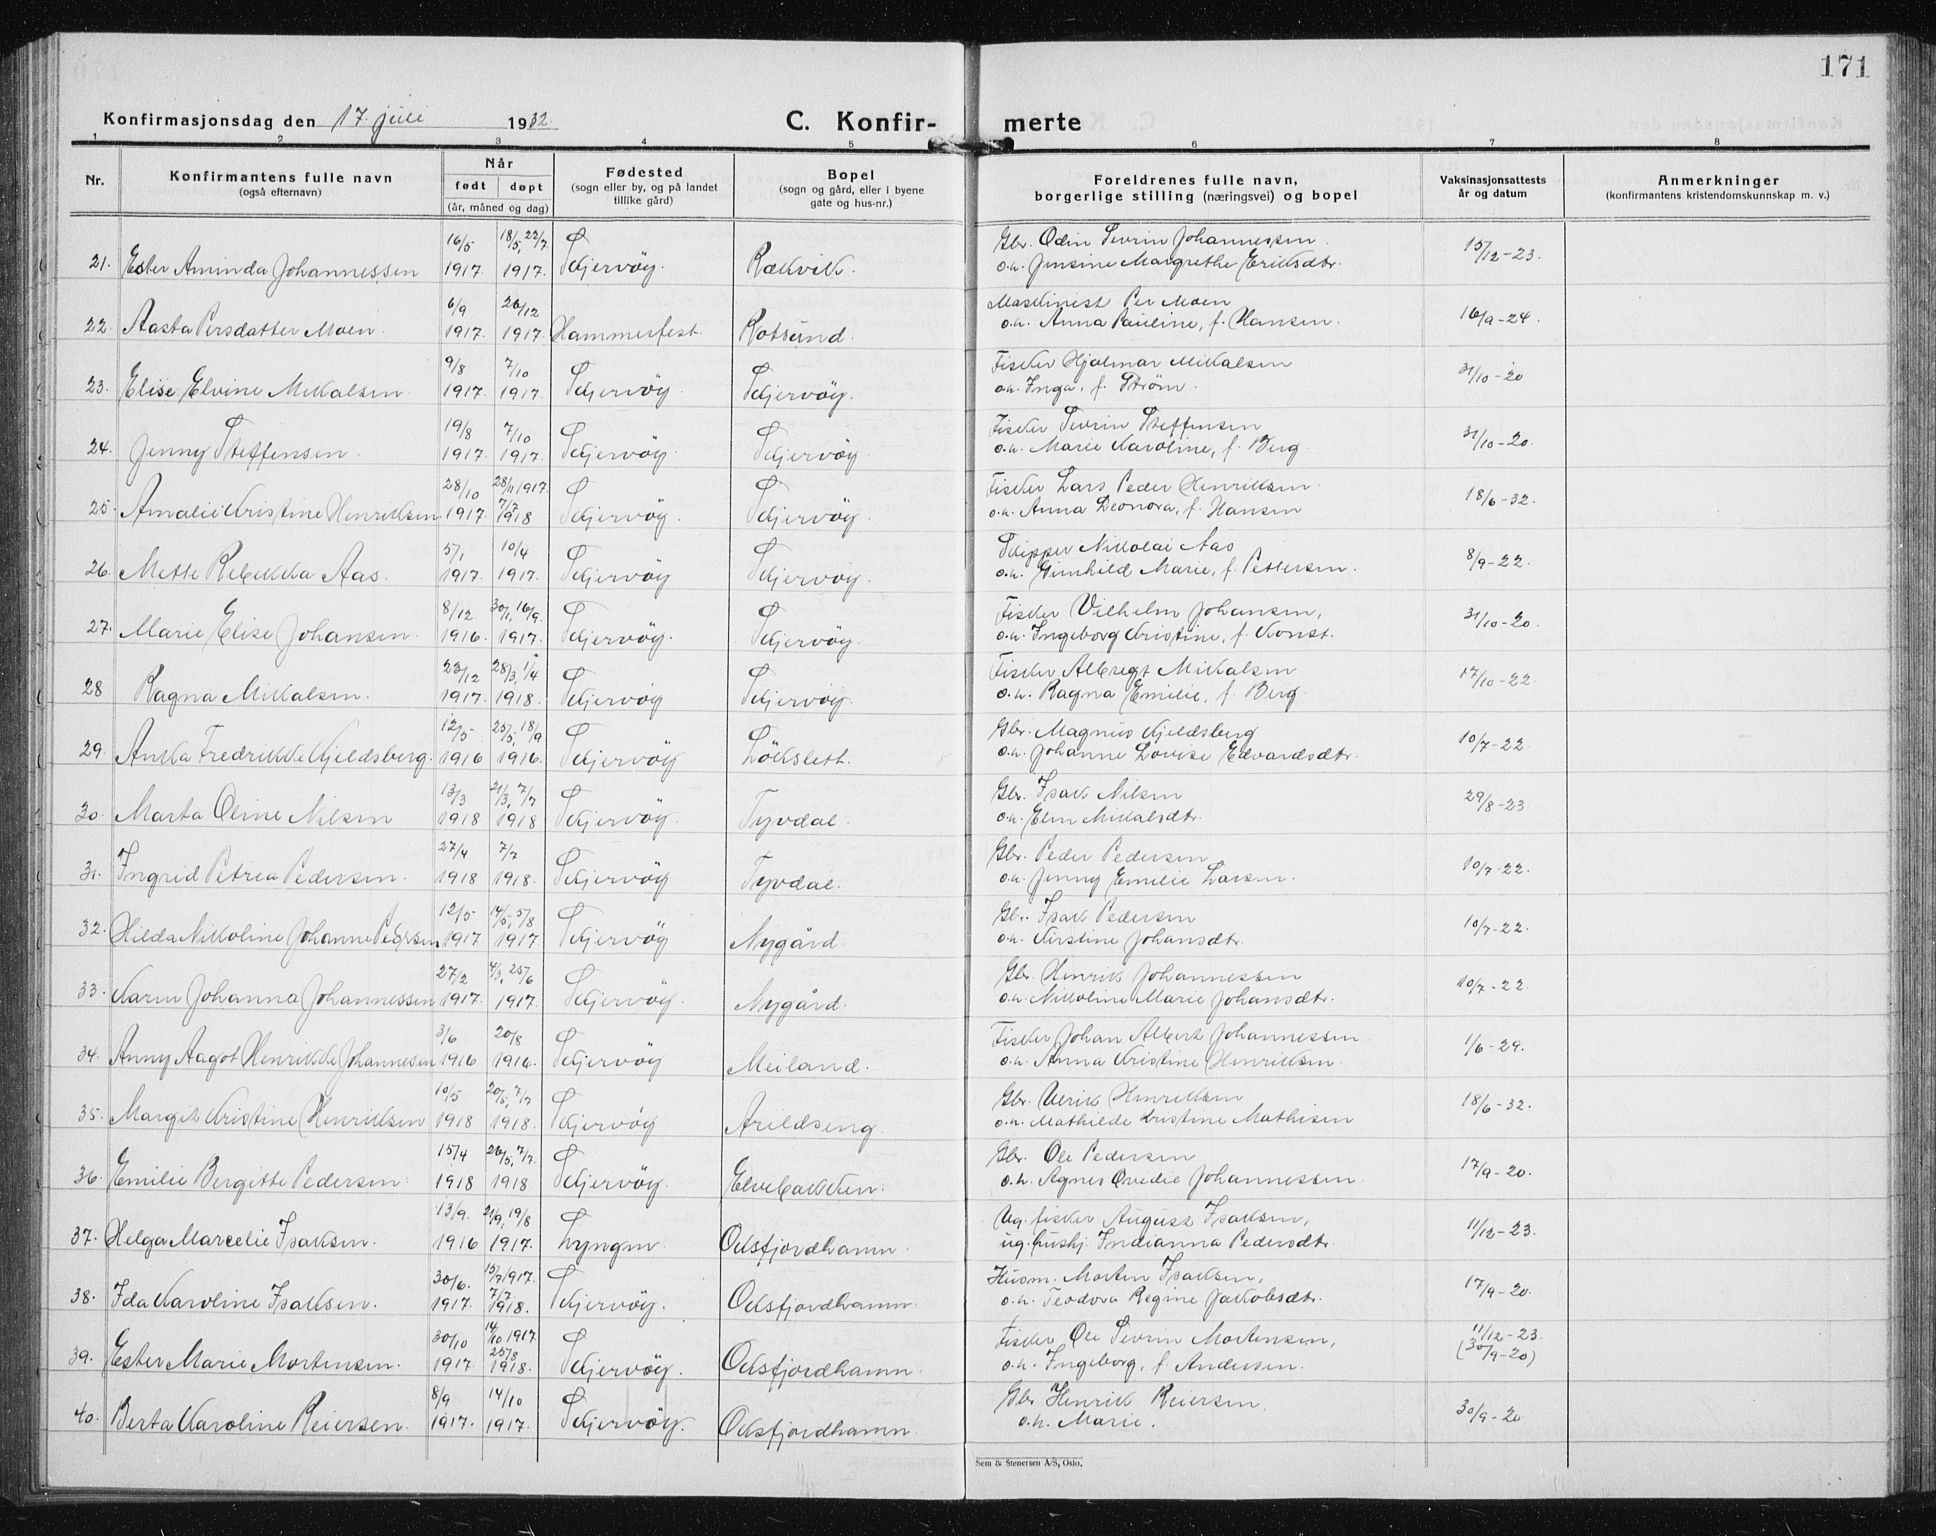 171
Konfirmasjonsdag den 17. juli 1932
C. Konfir- merte
1 2 3 4 5 6 7 8
Nr.
Konfirmantens fulle navn
(også efternavn)
Når
født døpt
(år, måned og dag)
Fødested
(sogn eller by, og på landet
tillike gård)
Bopel
(sogn og gård, eller i byene
gate og hus-nr.)
Foreldrenes fulle navn,
borgerlige stilling (næringsvei) og bopel
Vaksinasjonsattests
år og datum
Anmerkninger
(konfirmantens kristendomskunnskap m. v.)
16/5 18/5, 22/7 Gbr. Odin Sevrin Johannessen
21. Ester Aminda Johannessen 1917. 1917. Skjervöy. Rækvik. o.h. Jensine Margrethe Eriksdtr. 15/12-23.
6/9 26/12 Maskinist Per Moen
22. Aasta Persdatter Moen. 1917. 1917. Hammerfest. Rotsund. o.h. Anna Pauline, f. Hansen. 16/9-24.
9/8 7/10 Fisker Hjalmar Mikalsen
23. Elise Elvine Mikalsen. 1917. 1917. Skjervöy. Skjervöy. o.h. Inga, f. Strøm. 31/10-20
19/8 7/10 Fisker Sevrin Steffensen
24. Jenny Steffensen. 1917. 1917. Skjervöy. Skjervöy. o.h. Marie Karoline, f. Berg. 31/10-20.
28/10 28/11 1917. 7/7 Fisker Lars Peder Henriksen
25. Amalie Kristine Henriksen 1917. 1918 Skjervöy. Skjervöy. o.h. Anna Leonora, f. Hansen 18/6-32.
5/1 10/4 Skipper Nikolai Aas
26. Mette Rebekka Aas. 1917. 1917. Skjervöy Skjervöy. o.h. Gunhild Marie, f. Pettersen. 8/9-22.
8/12 30/1, 16/9. Fisker Vilhelm Johansen,
27. Marie Elise Johansen. 1916. 1917. Skjervöy. Skjervöy. o.h. Ingeborg Kristine, f. Konst. 31/10-20.
23/12 28/3, 1/4 Fisker Albregt Mikalsen
28 Ragna Mikalsen. 1917. 1918. Skjervöy Skjervöy. o.h. Ragna Emilie, f. Berg. 17/10-22.
12/5 25/5, 18/9 Gbr. Magnus Kjeldsberg
29. Anka Fredrikke Kjeldsberg. 1916 1916. Skjervöy Lökslett. o.h. Johanne Lovise Edvardsdtr. 10/7-22.
13/3 21/3, 7/7 Gbr. Isak Nilsen
30. Marta Oline Nilsen 1918 1918 Skjervöy. Tyvdal. o.h. Elen Mikalsdtr. 29/8-23.
27/4 7/7 Gbr. Peder Pedersen
31. Ingrid Petrea Pedersen. 1918 1918. Skjervöy Tyvdal. o.h. Jenny Emilie Larsen. 10/7-22.
12/5 14/5, 5/8 Gbr. Isak Pedersen
32. Hilda Nikoline Johanne Pedersen 1917 1917. Skjervöy Nygård. o.h. Kirstine Johansdtr. 10/7-22.
27/2 4/3, 25/6 Gbr. Henrik Johannessen
33. Karen Johanna Johannessen 1917. 1917. Skjervöy. Nygård. o.h. Nikoline Marie Johansdtr. 10/7-22.
3/6 20/8 Fisker Johan Albert Johannessen
34. Anny Aagot Henrikke Johannesen 1916 1916. Skjervöy Meiland. o.h. Anna Kristine Henriksen. 1/6-29.
10/5 20/5, 7/7 Gbr. Ulrik Henriksen
35. Margit Kristine Henriksen 1918 1918. Skjervöy Arildseng. o.h. Mathilde Kristine Mathisen 18/6-32.
15/4 26/5, 7/7. Gbr. Ole Pedersen
36. Emilie Bergitte Pedersen. 1918 1918. Skjervöy. Elvebakken. o.h. Agnes Ovedie Johannessen. 17/9-20.
13/9. 21/9, 19/8 Ug. fisker August Isaksen,
37. Helga Marcelie Isaksen. 1916 1917. Lyngen. Oksfjordhamn. ug. hushj. Indianna Pedersdtr. 11/12-23.
30/6. 15/7 1917. 7/7. Husm. Morten Isaksen,
38. Ida Karoline Isaksen. 1917. 1918. Skjervöy. Oksfjordhamn. o.h. Teodora Regine Jakobsdtr. 17/9-20.
30/10 14/10 1917. 25/8 Fisker Ole Sevrin Mortensen, 11/12-23.
39. Ester Marie Mortensen. 1917. 1918. Skjervöy. Oksfjordhamn. o.h. Ingeborg, f. Andersen. (30/9-20)
8/9 14/10 Gbr. Henrik Reiersen.
40. Berta Karoline Reiersen. 1917. 1917. Skjervöy. Oksfjordhamn. o.h. Marie. 30/9-20
Sem & Stenersen A/S, Oslo.